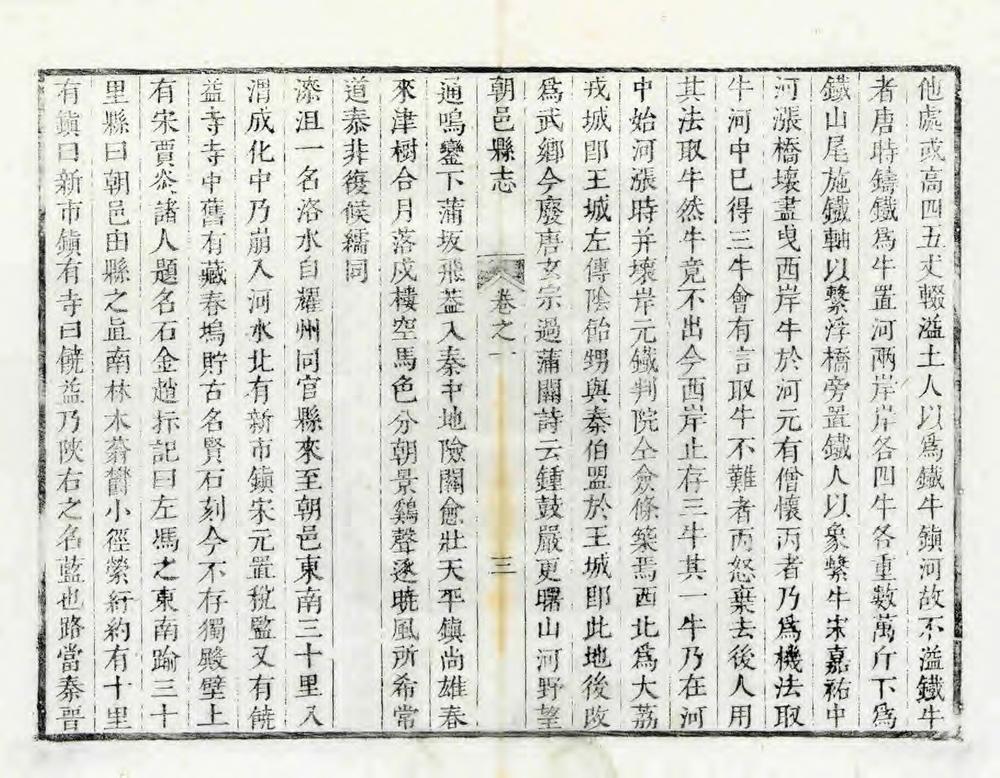 他處或高四五丈輟溢土人以爲鐵牛鎮河故不溢鐵牛
者唐時鑄鐵爲牛置河兩岸岸各四牛各重數萬斤下爲
鐵山尾施鐵軸以繫浮橋旁置鐵人以象繫牛宋嘉祐中
河漲橋壞盡曳西岸牛於河元有僧懷丙者乃爲機法取
牛河中巳得三牛會有言取牛不難者丙怒棄去後人用
其法取牛然牛竟不出今西岸止存三牛其一牛乃在河
中始河漲時并壞岸元鐵判院仝僉條築焉西北爲大荔
戎城即王城左傳陰飴甥與秦伯盟於王城即此地後改
爲武鄉今廢唐玄宗過蒲關詩云鍾鼓嚴更曙山河野望
通鳴鑾下蒲坂飛葢入秦中地險關愈壯天平鎮尚雄春
來津樹合月落戍樓空馬色分朝景鷄聲逐曉風所希常
道泰非復候繻同
漆沮一名洛水自耀州同官縣來至朝邑東南三十里入
渭成化中乃崩入河水北有新市鎮宋元置稅監又有饒
益寺寺中舊有藏春塢貯古名賢石刻今不存獨殿壁上
有宋賈炎諸人題名石金趙抃記曰左馮之東南踰三十
里縣曰朝邑由縣之直南林木蓊鬱小徑縈紆約有十里
有鎮曰新市鎮有寺曰饒益乃陝右之名藍也路當秦晋
朝邑縣志
卷之一
三